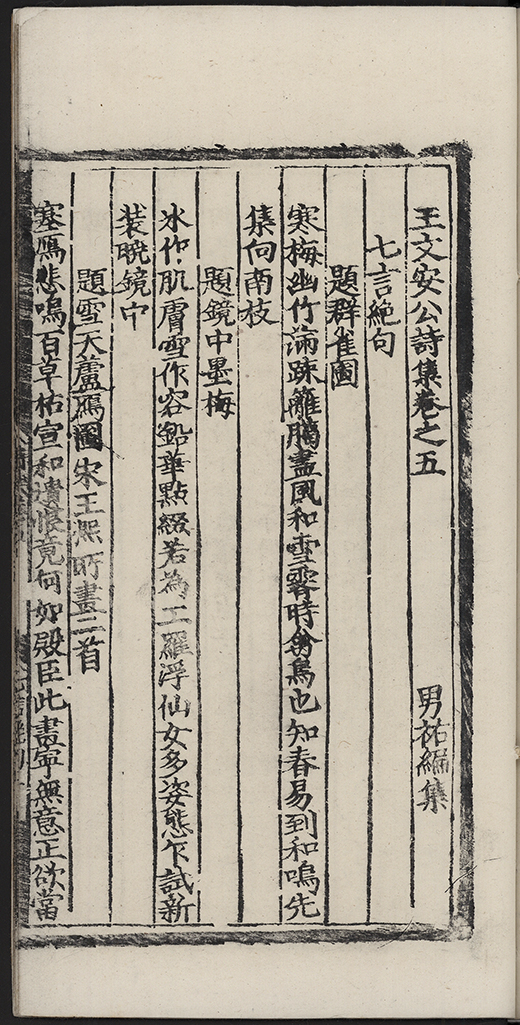 王文安公詩集卷之五　男祐編集
七言絶句
題群雀圖
寒梅幽竹滿踈離臈盡風和雪霽時禽鳥也知春易到和鳴先
集向南枝
題鏡中墨梅
冰作肌膚雪作容鉛華點綴若為工羅浮仙女多姿態乍試新
裝曉鏡中
題雪天蘆鴈圖宋王凞所畫二首
塞鴈悲鳴百草枯宣和遺恨竟何如殿臣此畫寧無意正欲當